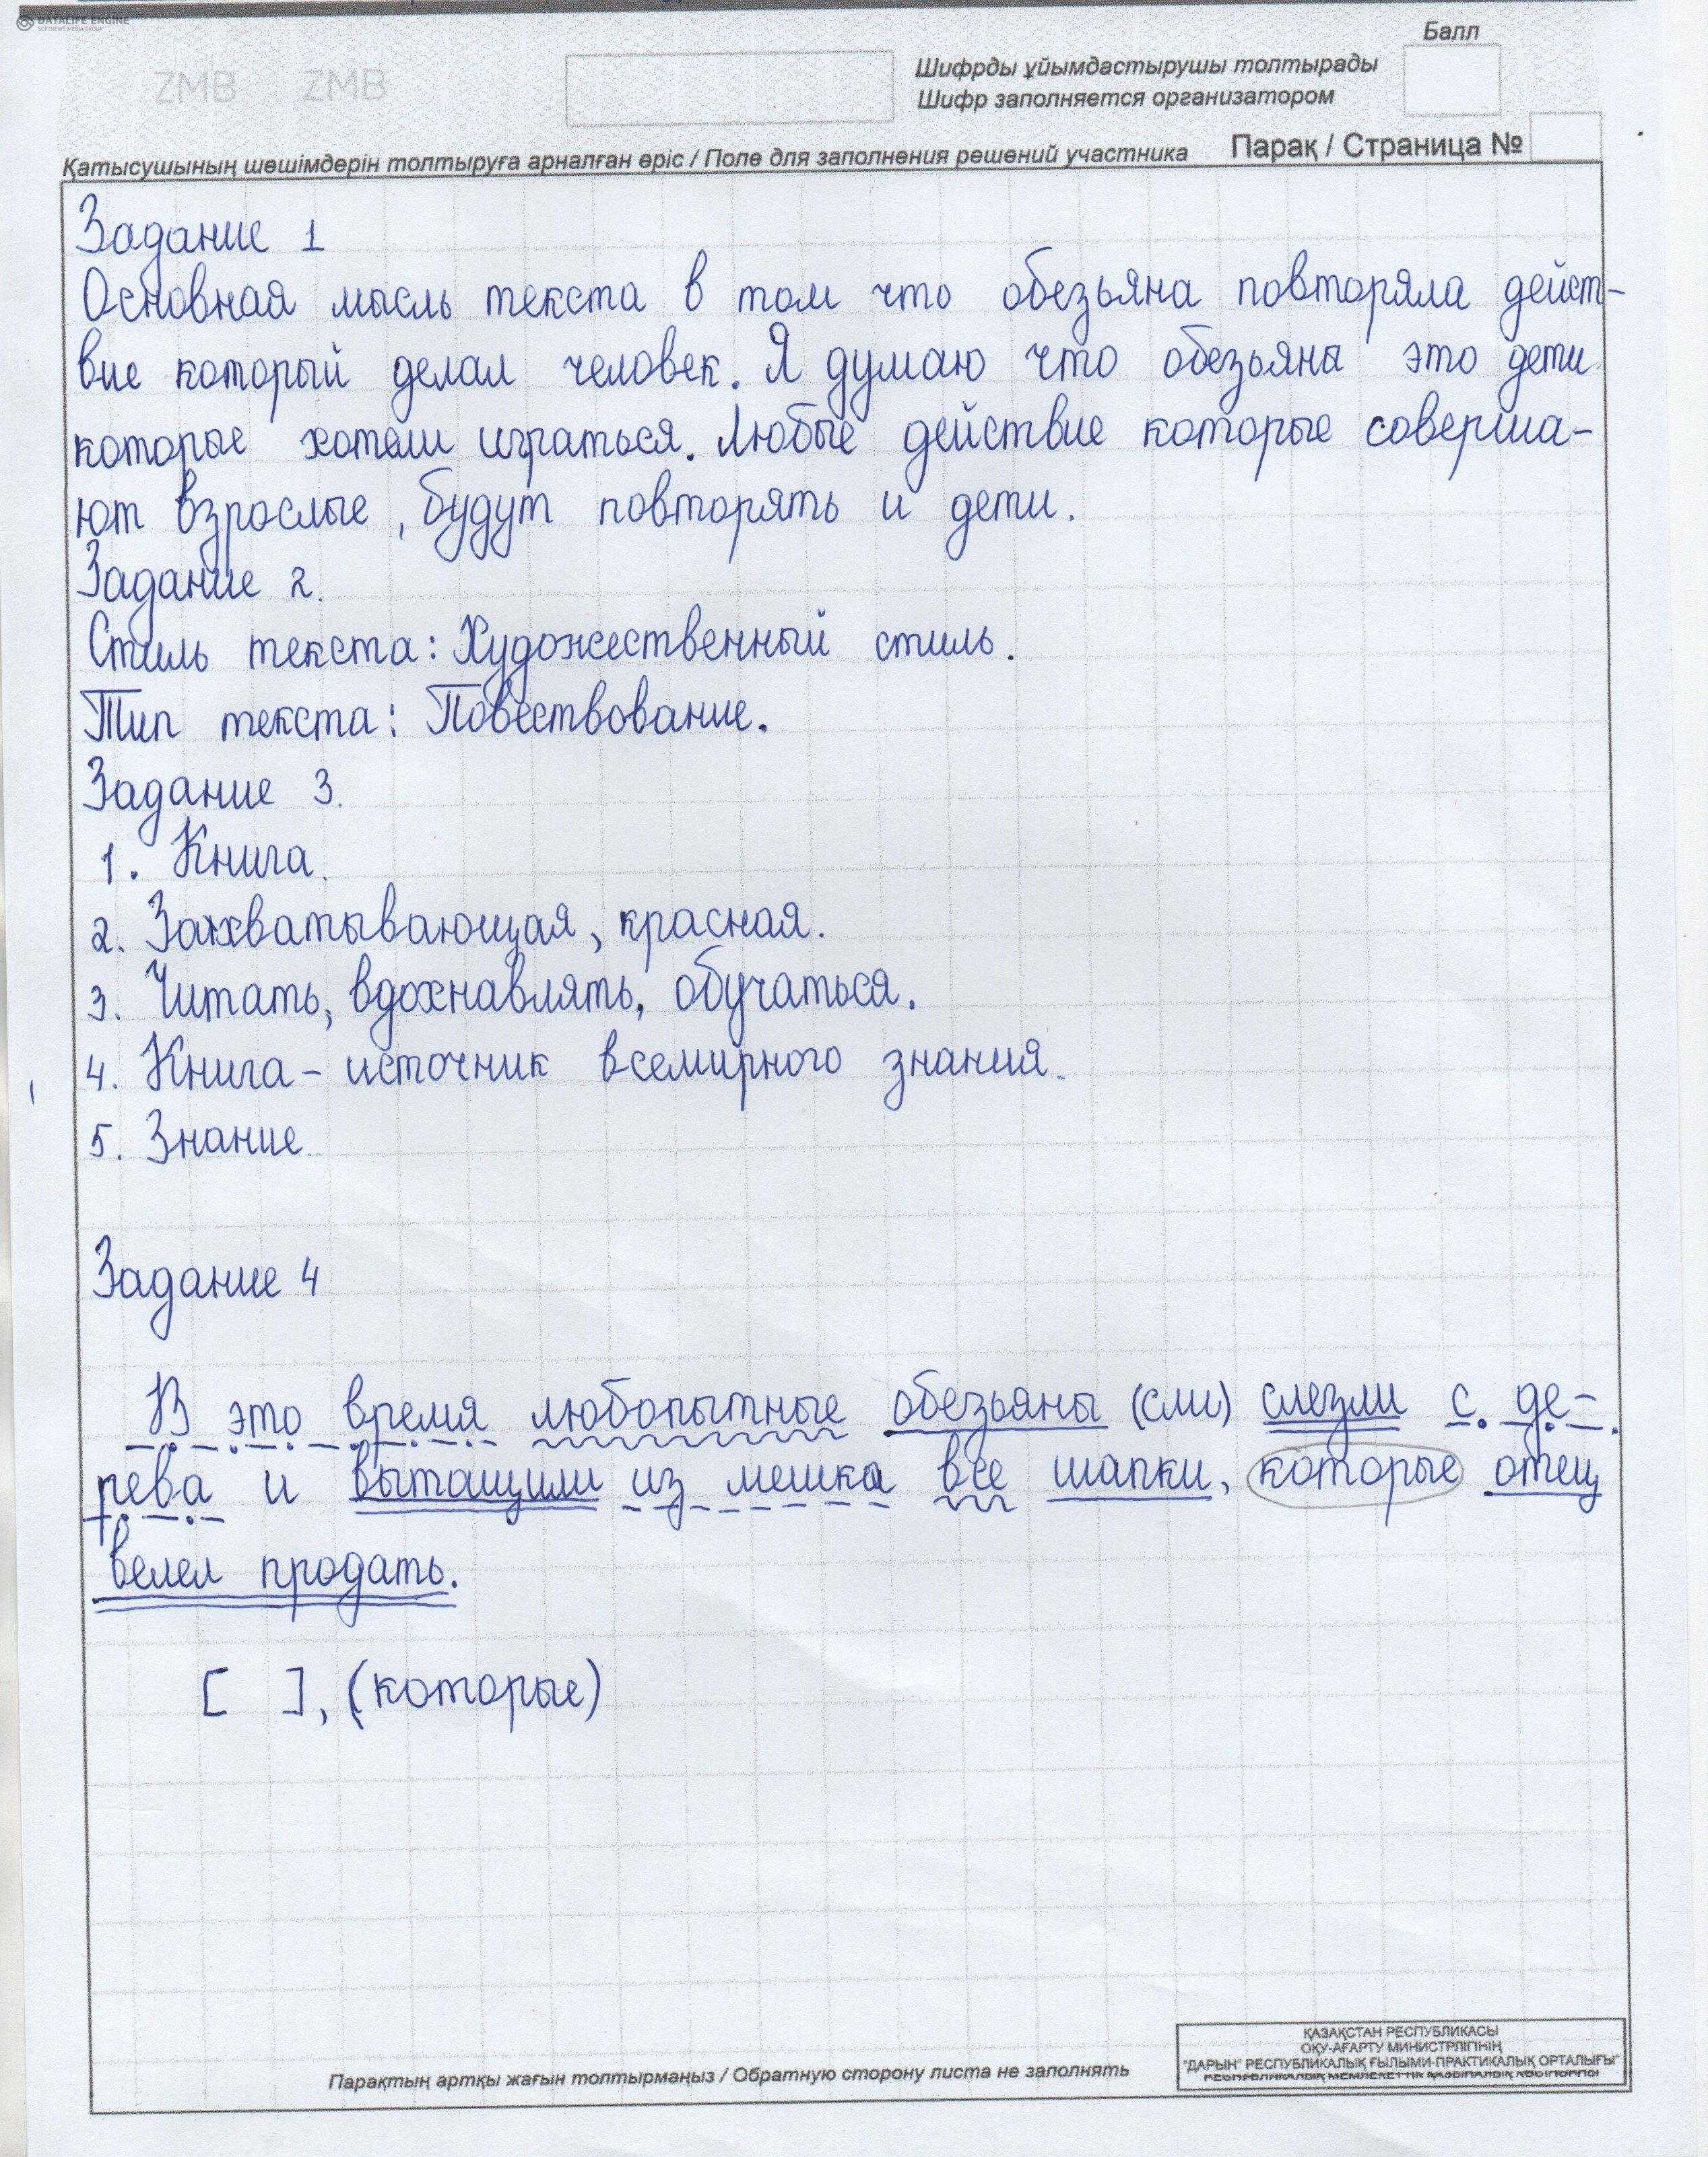 DATALIFE ENGINE
Балл
ZMB ZMB
Шифрды ұйымдастырушы толтырады
Шифр заполняется организатором
Қатысушының шешімдерін толтыруға арналған өріс / Поле для заполнения решений участника
Парақ / Страница №
Задание 1
Основная мысль текста в том что обезьяна повторяла дейст-
вие который делал человек. Я думаю что обезьяны это дети
которые хотели играться. Любые действие которые соверша-
ют взрослые, будут повторять и дети.
Задание 2.
Стиль текста: Художественный стиль.
Тип текста: Повествование.
Задание 3.
1. Книга.
2. Захватывающая, красная.
3. Читать, вдохнавлять, обучаться.
4. Книга - источник всемирного знания.
5. Знание.
Задание 4
В это время любопытные обезьяны (сли) слезли с де-
рева и вытащили из мешка все шапки, которые отец
велел продать.
[ ], (которые)
ҚАЗАҚСТАН РЕСПУБЛИКАСЫ
ОҚУ-АҒАРТУ МИНИСТРЛІГІНІҢ
"ДАРЫН" РЕСПУБЛИКАЛЫҚ ҒЫЛЫМИ-ПРАКТИКАЛЫҚ ОРТАЛЫҒЫ"
РЕСПУБЛИКАЛЫҚ МЕМЛЕКЕТТІК ҚАЗЫНАЛЫҚ КӘСІПОРНЫ
Парақтың артқы жағын толтырмаңыз / Обратную сторону листа не заполнять